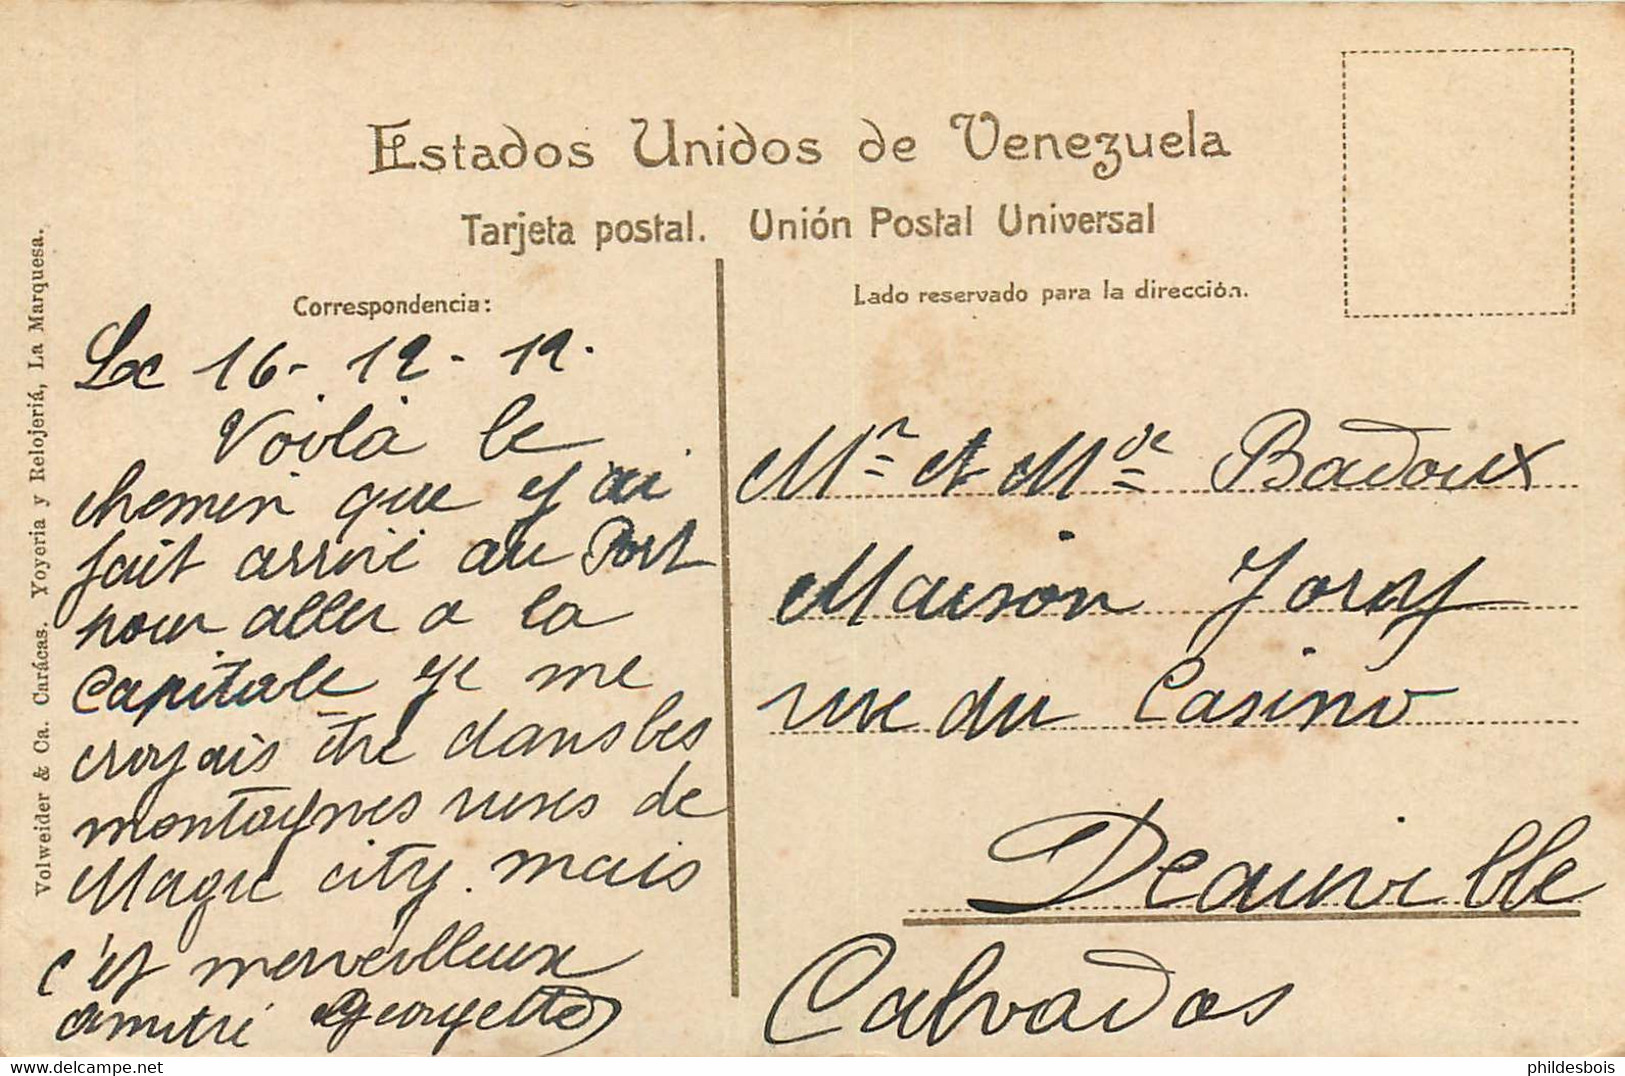 Estados Unidos de Venezuela
Tarjeta postal. Unión Postal Universal
Correspondencia:
Lado reservado para la dirección.
Le 16-12-12.
Voilà le
chemin que j'ai
fait arrivé au Port
pour aller a la
Capitale je me
croyais être dans les
montagnes russes de
Magic city. mais
c'est merveilleux
amitié Georgette
Mr et Mde Badoux
Maison
rue du Casino
Deauville
Calvados
Volweider & Ca. Carácas. Yoyeria y Relojeriá, La Marquesa.
phildesbois